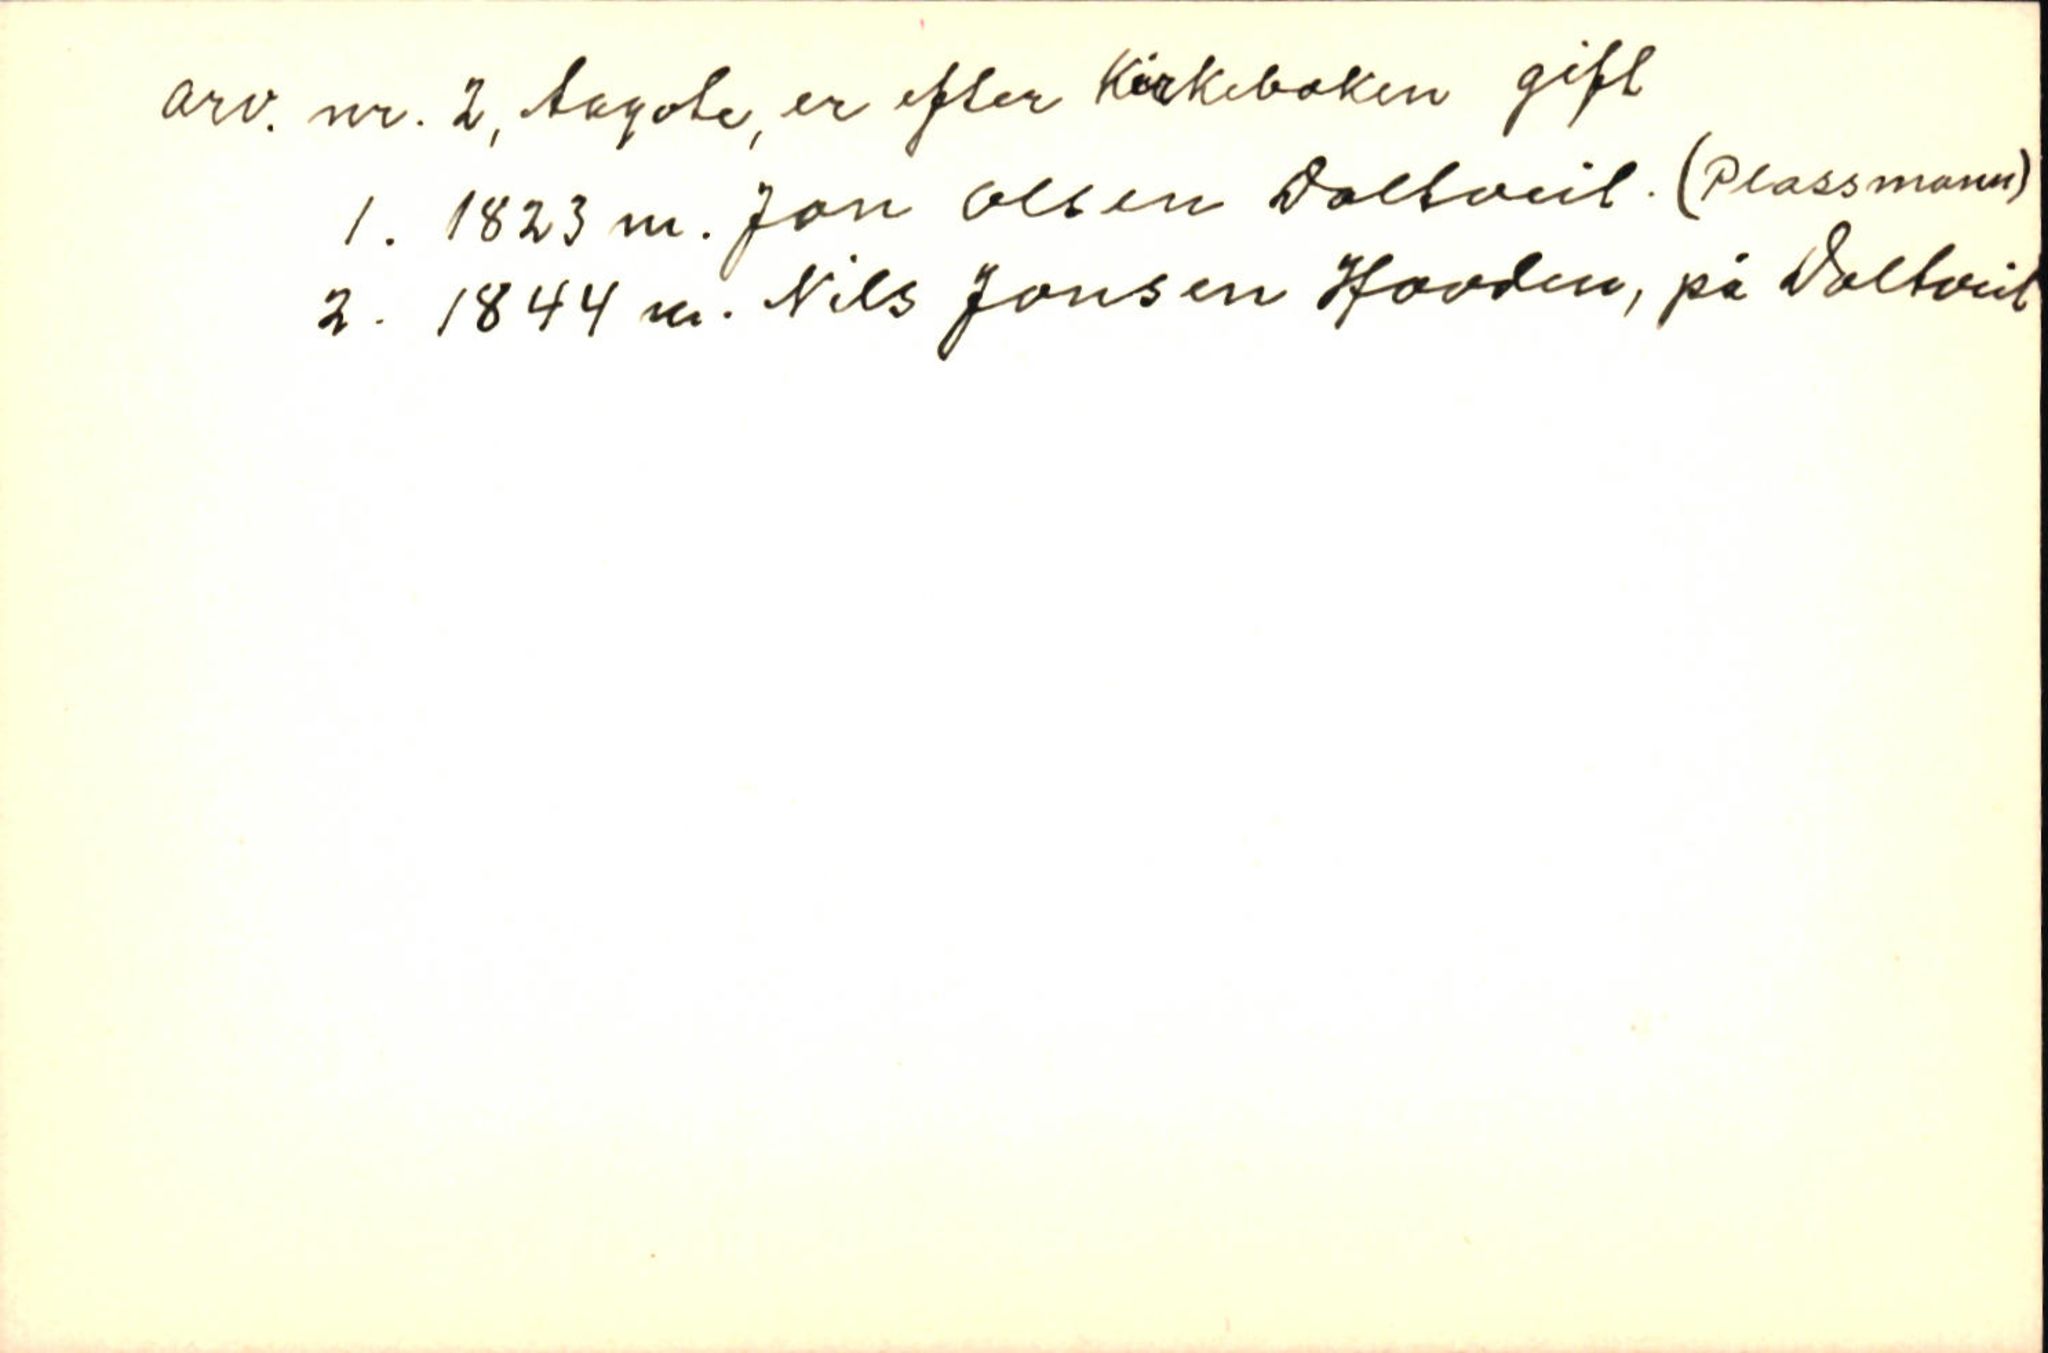 arv. nr. 2, Aagote, er efter Kirkeboken gift
1. 1823 m. Jon Olsen Doltveit. (Plassmann)
2. 1844 m. Nils Jonsen Hovden, på Doltveit